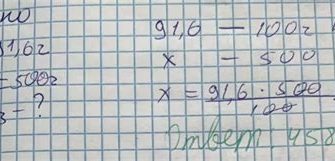 91,6г
=500г
- ?
91,6 — 100г
x - 500
x = 91,6 · 500
100
Ответ: 458